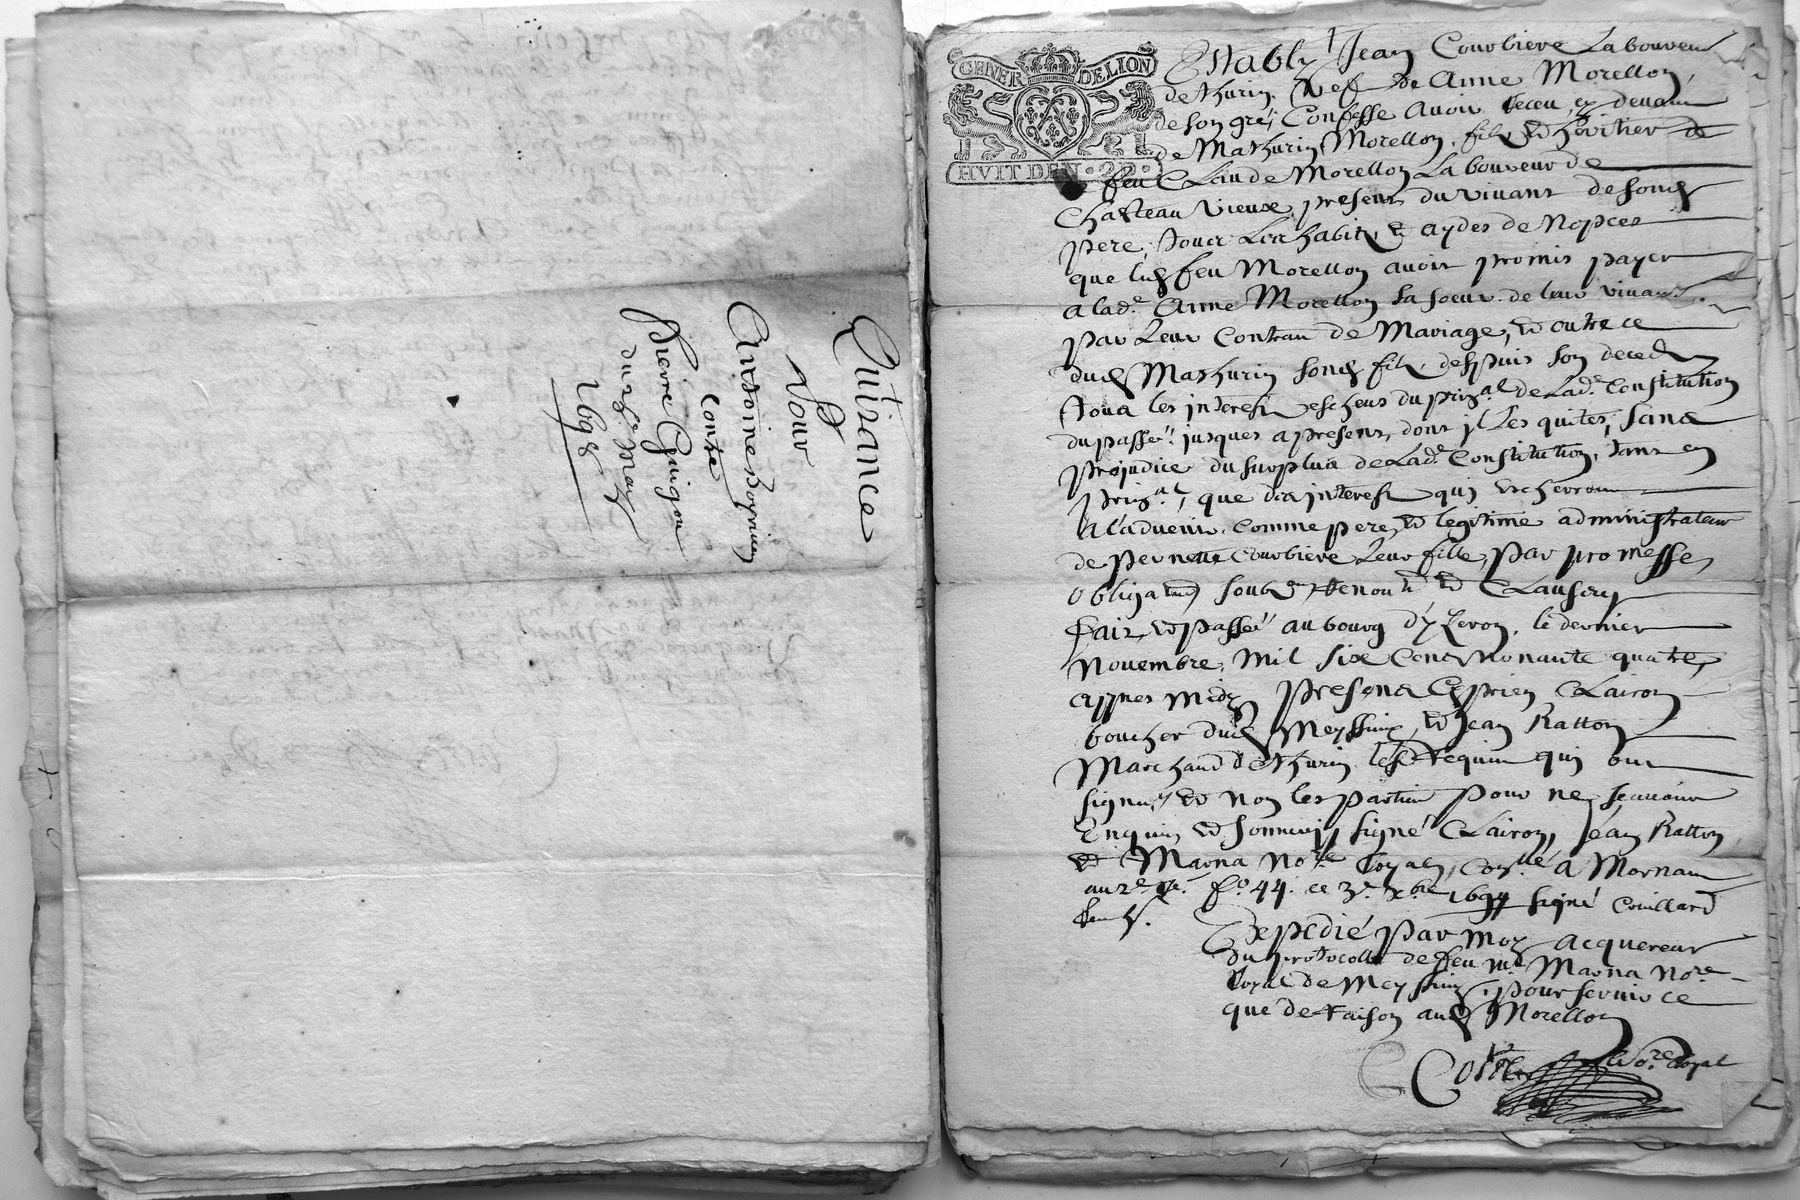 Quittance
Pour
Anthoine Boyriven
Contre
Pierre Guigou
du 26e May
1698
GENER DE LION
HVIT DEN. 22.
Estably Jean Courbiere Laboureur
de Thurin vef de Anne Morellon,
de son gré, Confesse avoir receu cy devant
de Mathurin Morellon, fils et heritier de
feu Claude Morellon Laboureur de
Chasteau Vieux, present, du vivant de sond
pere, tous les habitz, et aydes de Nopces
que led feu Morellon avoit promis payer
a lad.e Anne Morellon sa soeur. de leur vivant
par Leur Contract de Mariage, et outre ce
dud Mathurin sond filz, despuis son deced
tous les interestz escheus du prin.al de Lad.e Constitution
du passé jusques a present, dont il les quite, sans
prejudice du surplus de Lad.e Constitution, tant en
prin.al, que des interestz quy escherront
a l'advenir, comme pere, et legitime administrateur
de Pernette Courbiere Leur fille, par promesse,
obliga.on, soub.on renon.on et Clauses,
fait, et passé au bourg d'yzeron, le dernier
Novembre, mil six cens nonante quatre,
appres midy presens Ciprien Clairon
boucher dud Meyssimy, et Jean Ratton
Marchand de Thurin, lesd requis quy ont
signé, et non les parties pour ne sçavoir
Enquis, et sommés, signé Clairon, Jean Ratton,
et Marna No.re Royal, Con.llé a Mornant
au 2.e re. f.o 44. ce 3.e xbre 1694 signé Couillard
Expedié par moy acquereur
du protocolle de feu m.e Marna No.re
Royal de Meyssimy, pour servir ce
que de raison aud Morellon
No.re Royal